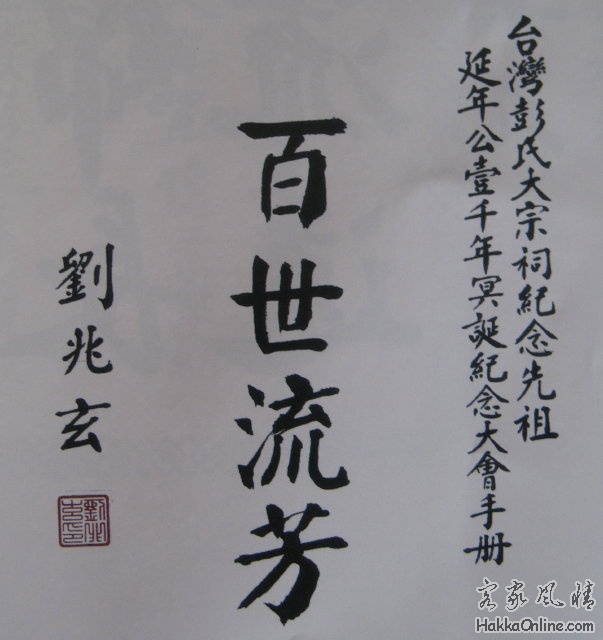 台灣彭氏大宗祠紀念先祖
延年公壹千年冥誕紀念大會手册
百世流芳
劉兆玄
客家風情
HakkaOnline.com